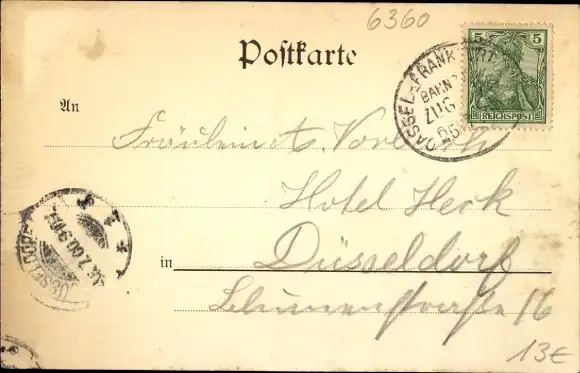 6360
Postkarte
5
REICHSPOST
CASSEL-FRANKFURT
BAHNPOST
ZUG
An
Fräulein A.
Hotel Heck
in Düsseldorf
Blumenstraße 16
DÜSSELDORF
13€